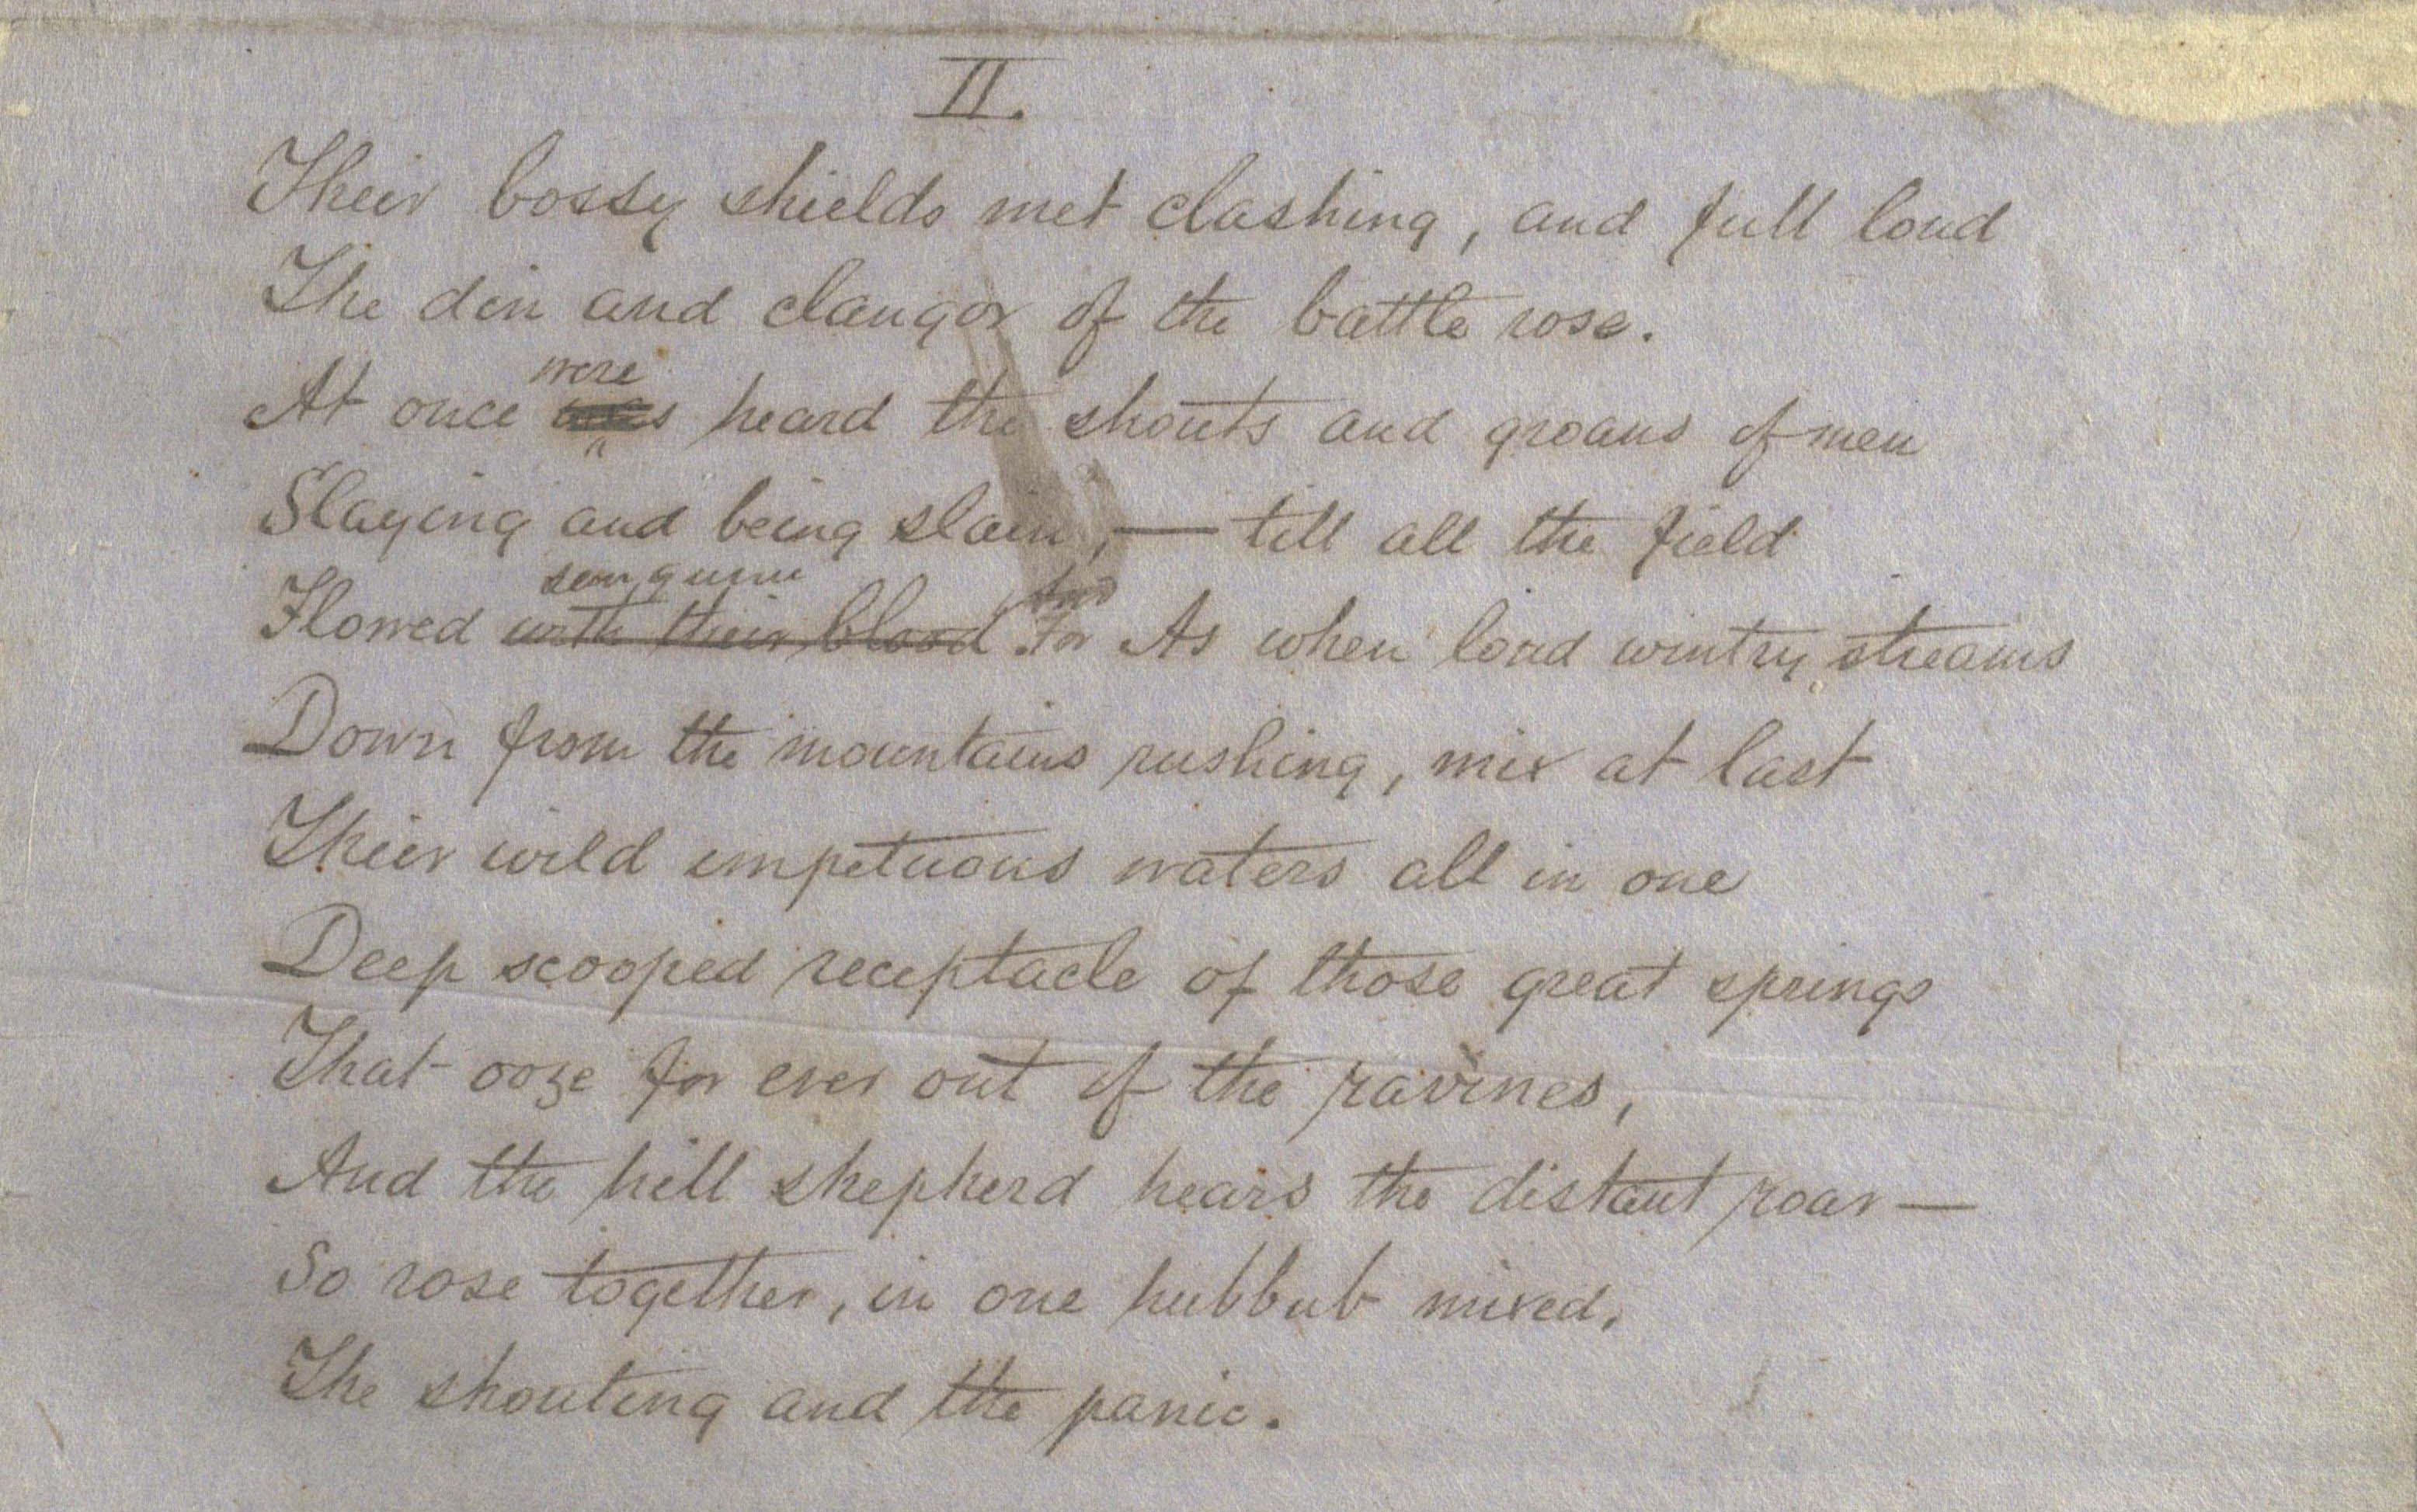 II.
Their bossy shields met clashing, and full loud
The din and clangor of the battle rose.
were
At once was heard the shouts and groans of men
Slaying and being slain, — till all the field
sanguine
Flowed with their blood For As when loud wintry streams
Down from the mountains rushing, mix at last
Their wild impetuous waters all in one
Deep scooped receptacle of those great springs
That ooze for ever out of the ravines,
And the hill shepherd hears the distant roar —
So rose together, in one hubbub mixed,
The shouting and the panic.